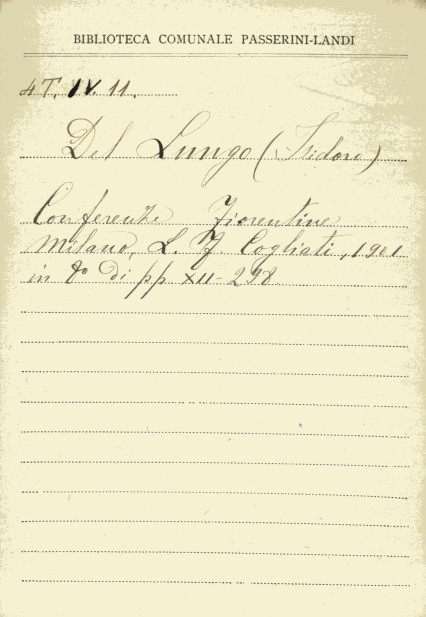 BIBLIOTECA COMUNALE PASSERINI-LANDI
4T. IV. 11.
Del Lungo (Isidoro)
Conferenze Fiorentine
Milano, L. F. Cogliati, 1901
in 8º di pp XII-298.